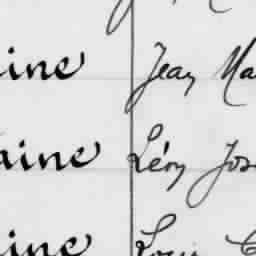 ine Jean Ma
aine Léon Jos
ine Louis C